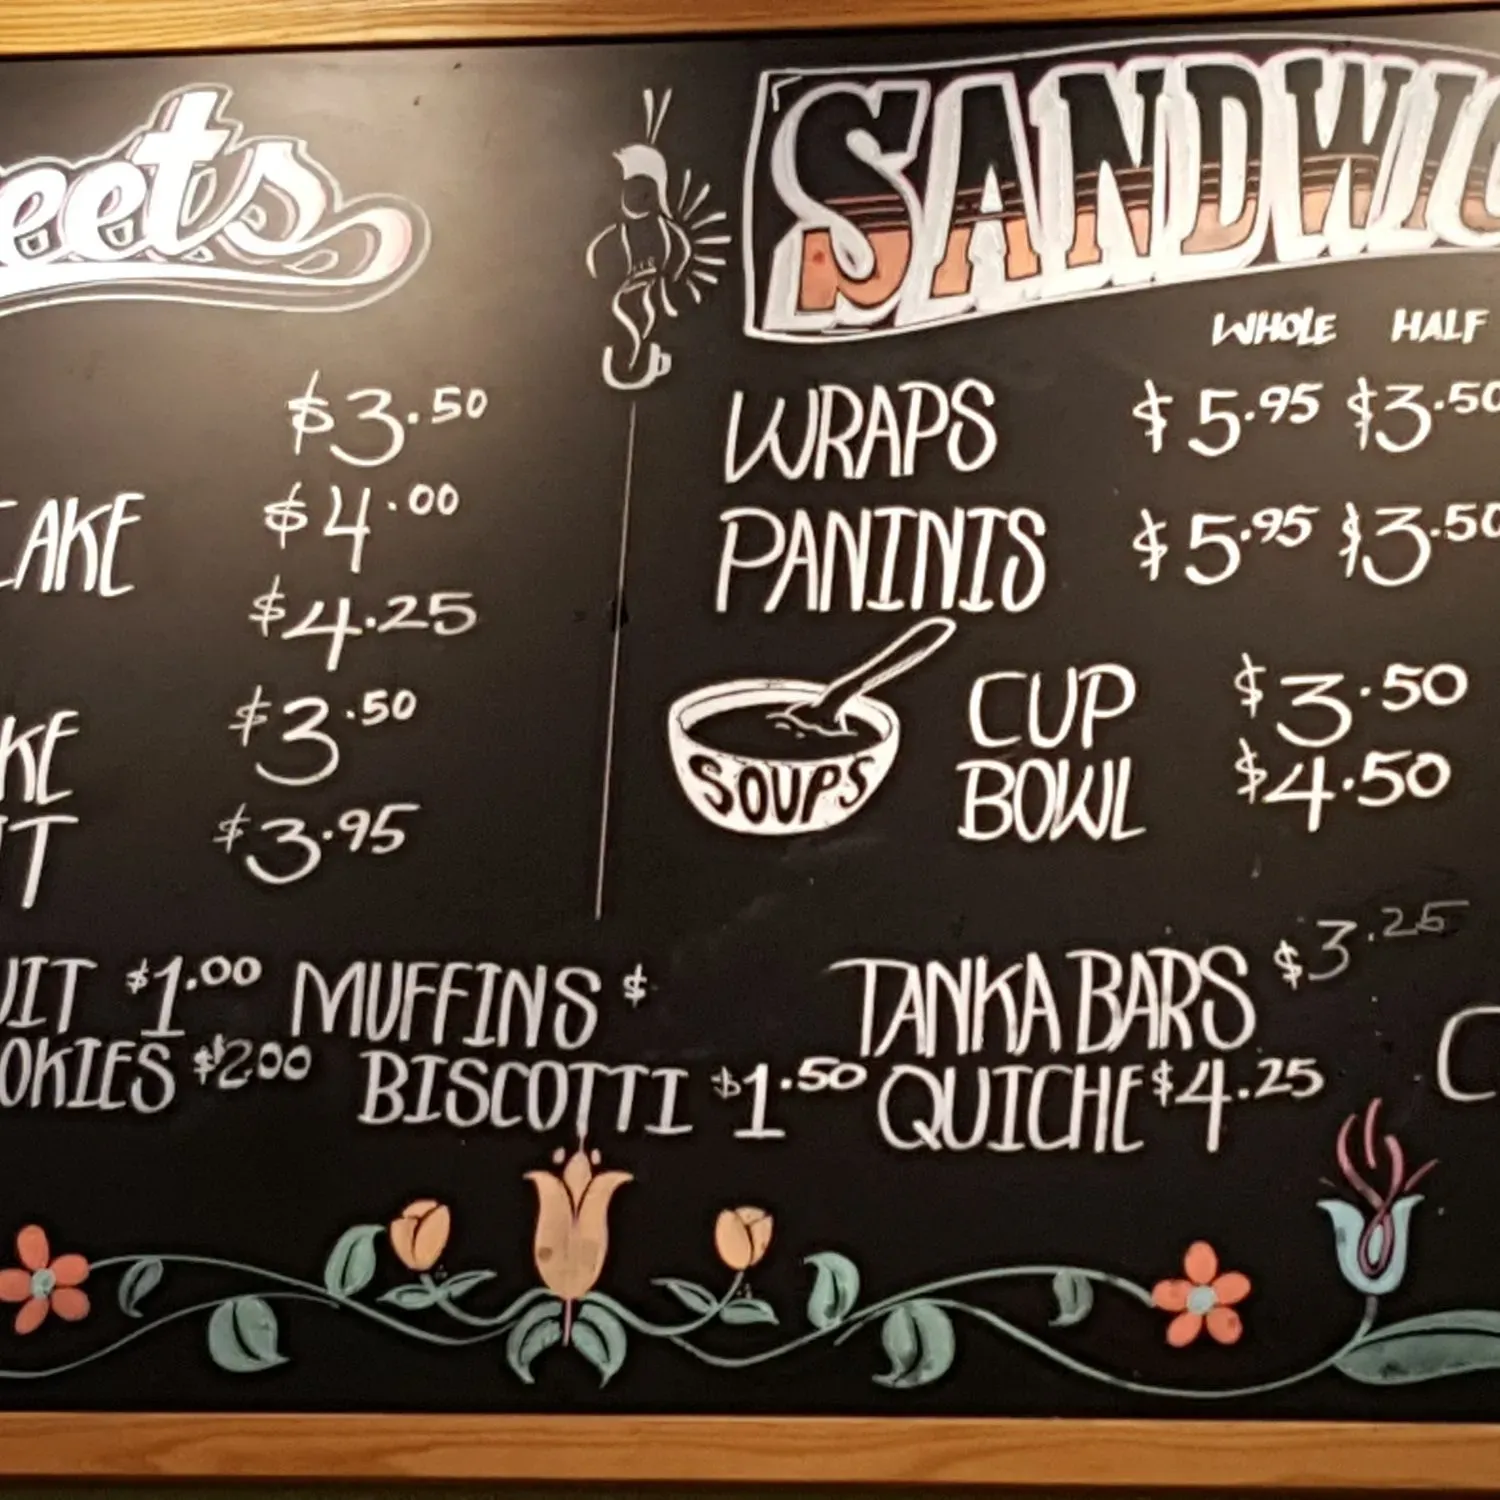 eets
$3.50
CAKE $4.00
$4.25
KE $3.50
IT $3.95
SANDWIC
WHOLE HALF
WRAPS $5.95 $3.50
PANINIS $5.95 $3.50
SOUPS
CUP $3.50
BOWL $4.50
UIT $1.00 MUFFINS $ TANKA BARS $3.25
OKIES $2.00 BISCOTTI $1.50 QUICHE $4.25 C